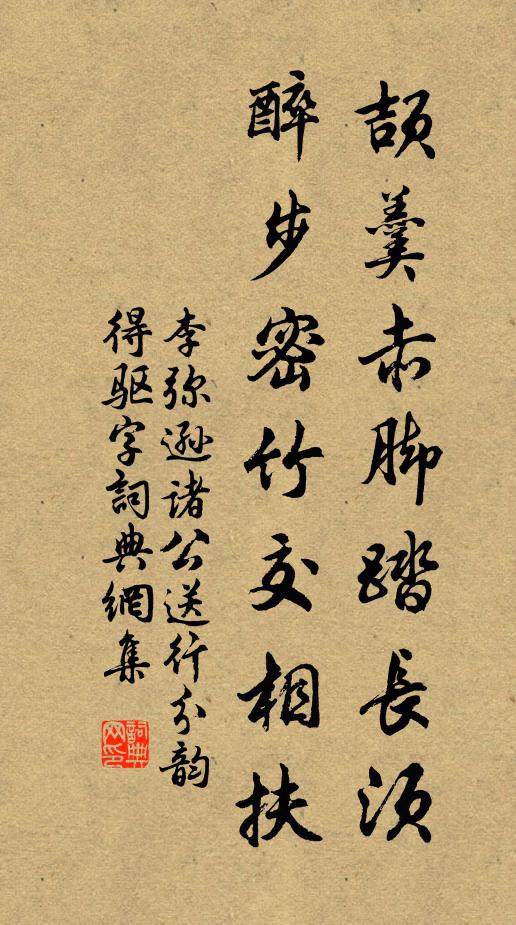 頡羹赤脚踏長須
醉步密竹交相扶
李弥遜諸公送行分韵
得驱字詞典網集
詞典网印